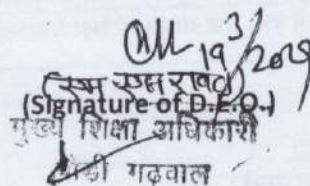 19/3/2025
(एम एम रावत)
(Signature of D.E.O.)
मुख्य शिक्षा अधिकारी
पौड़ी गढ़वाल